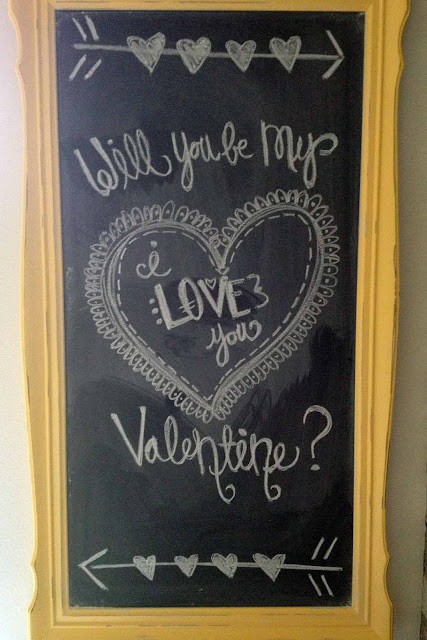 Will you be My
i
LOVE
you
Valentine?